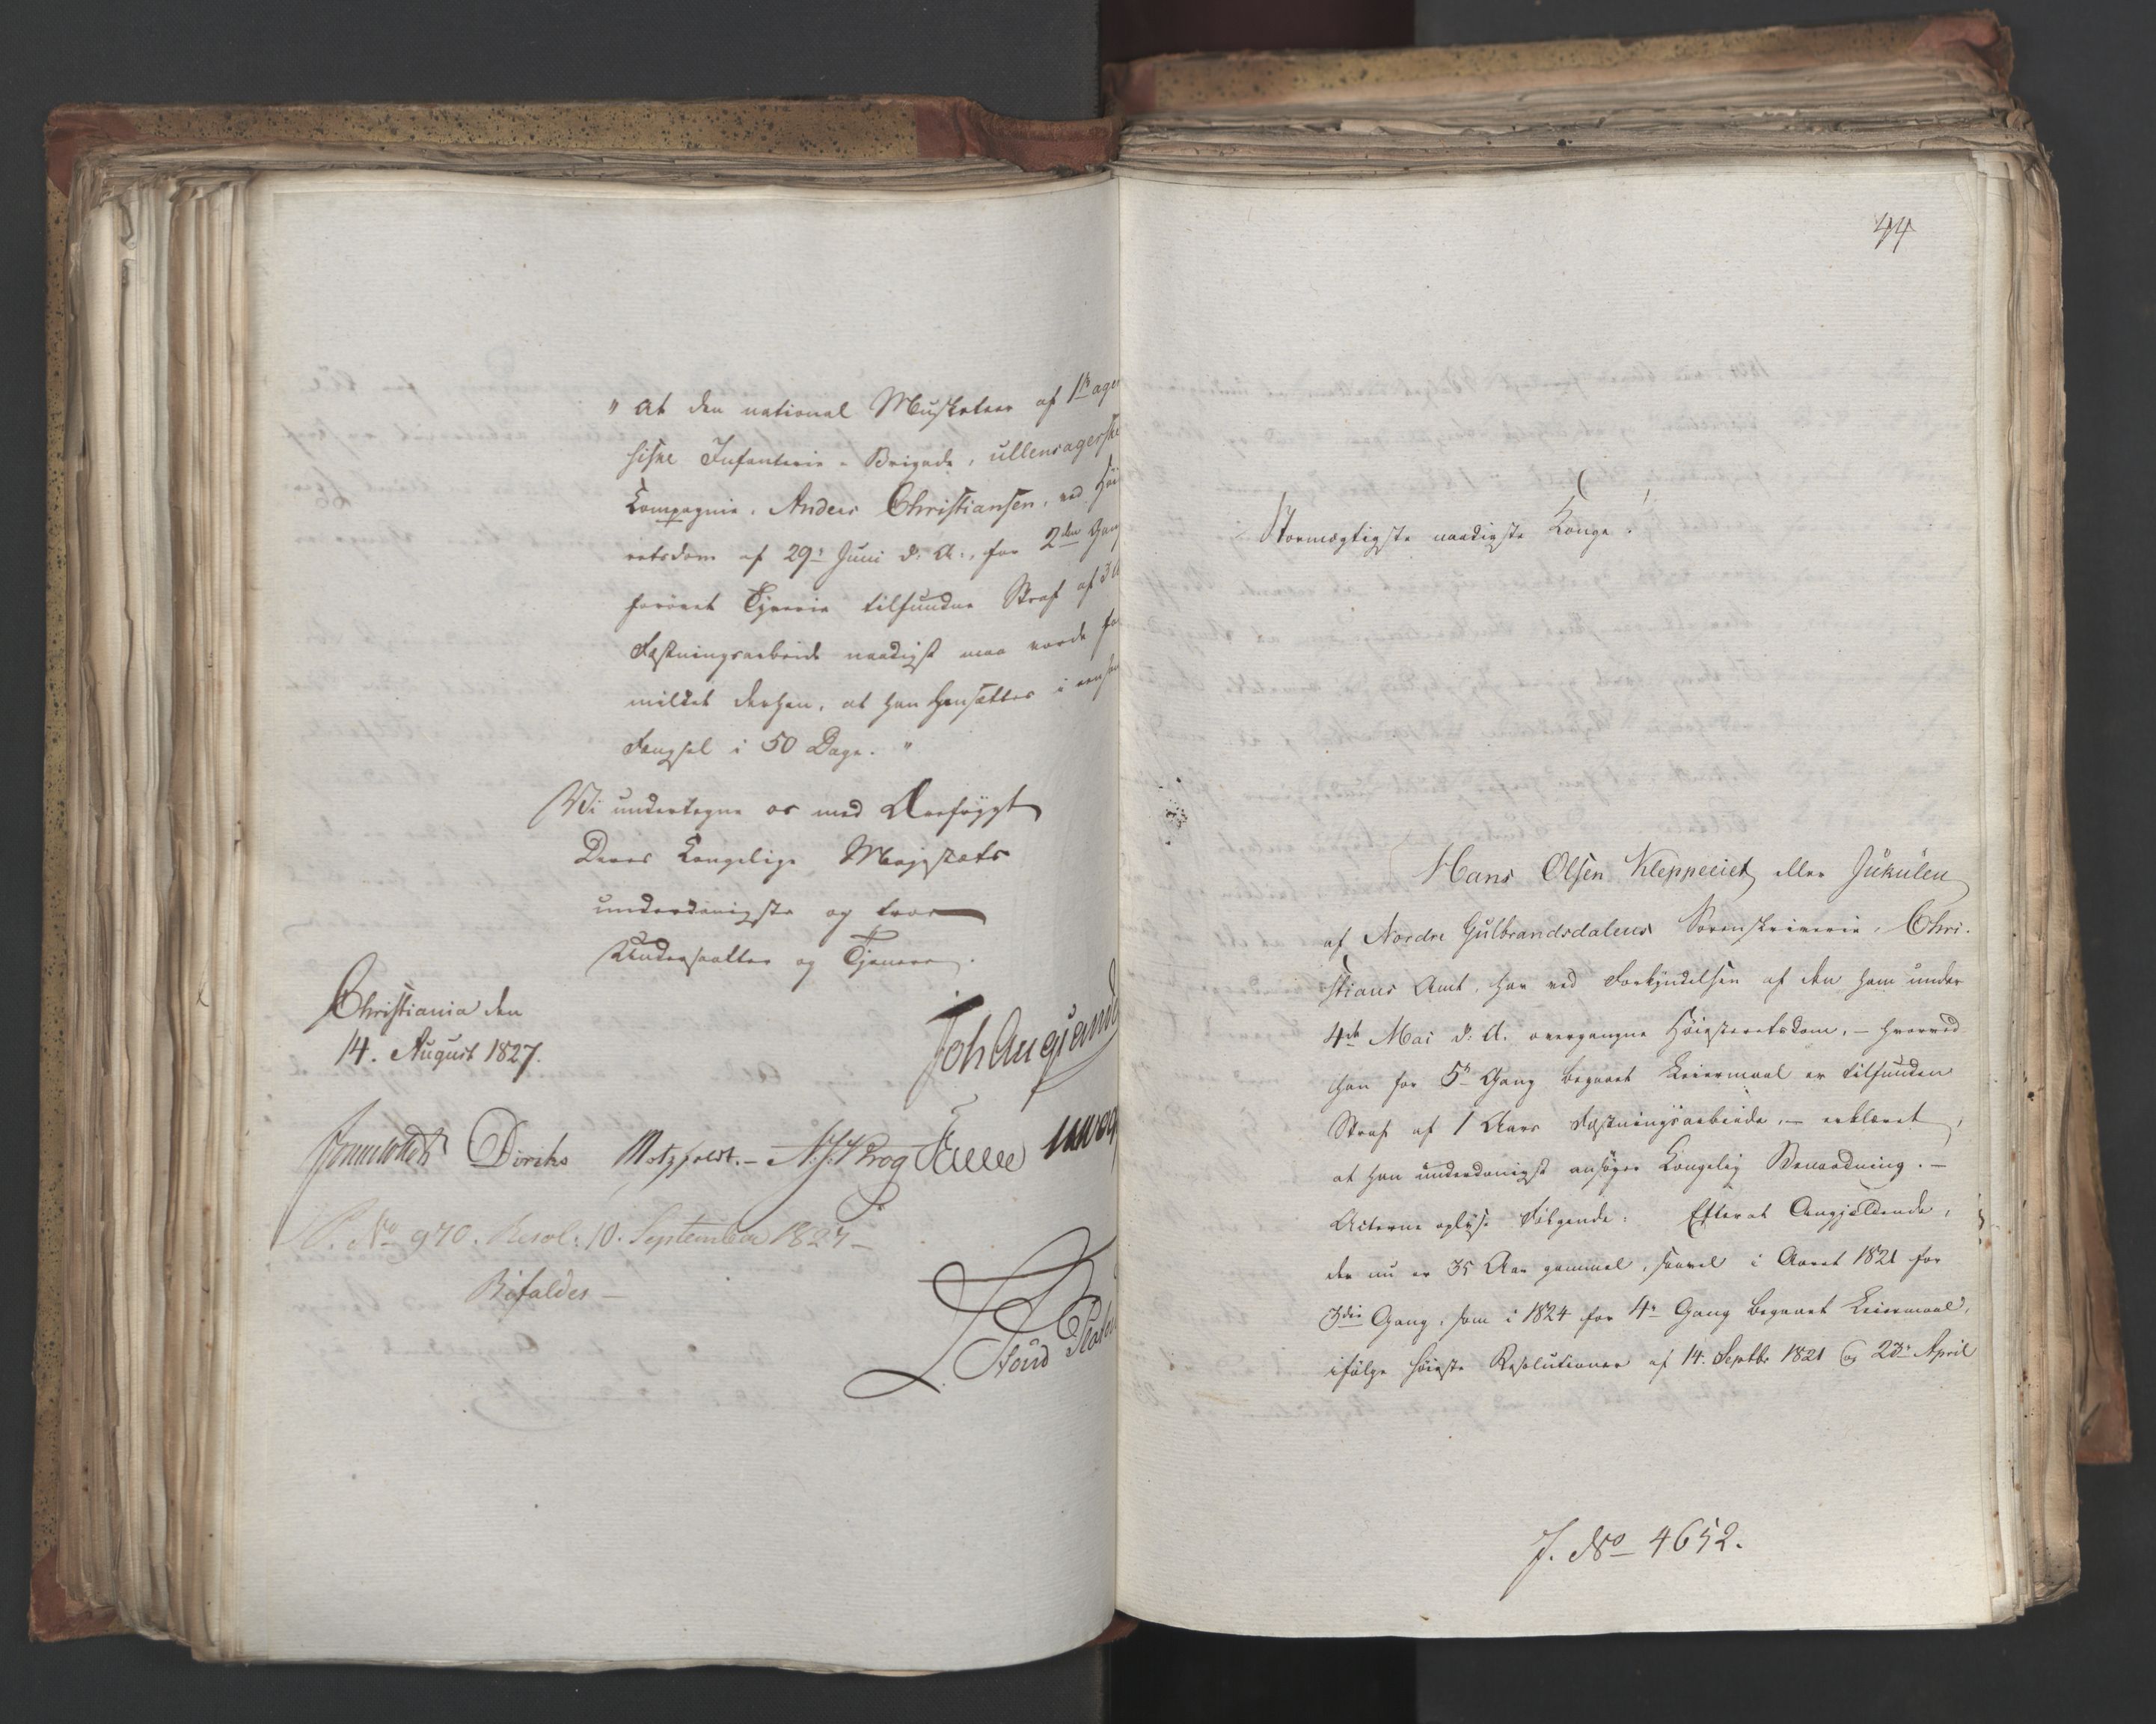 " At den national Musketeer af 1ste ager
shiske Infanterie-Brigade, ullensagerske
Compagnie, Anders Christiansen, ved Høi
retsdom af 29de Juni d. A., for 2den Gang
forøvet Tyverie tilfundne Straf af 3 A
Fæstningsarbeide naadigst maa vorde for
mildet derhen, at han hensættes i eensom
Fængsel i 50 Dage. "
Vi undertegne os med Ærefrygt
Deres Kongelige Majestæts
underdanigste og troe
Undersaatter og Tjenere.
Christiania den
14. August 1827.
Joh Aug Sand
Sommerfeldt Diriks Motzfeldt. - N. J. Krog
P. No 970. Resol: 10. September 1827 -
Bifaldes -
44
Stormægtigste naadigste Konge!
Hans Olsen Kleppeeiet eller Jukulen
af Nordre Gulbrandsdalens Sorenskriverie, Chri-
stians Amt, har ved Forkyndelsen af den ham under
4de Mai d. A. overgangne Høiesteretsdom, - hvorved
han for 5te Gang begaaet Leiermaal er tilfunden
Straf af 1 Aars Fæstningsarbeide, - erklæret,
at han underdanigst ansøger Kongelig Benaadning. -
Acterne oplyse Følgende: Efterat Angjældende,
der nu er 35 Aar gammel, saavel i Aaret 1821 for
3die Gang, som i 1824 for 4de Gang begaaet Leiermaal,
ifølge høieste Resolutioner af 14. Septbr 1821 og 23de April
J. No 4652.